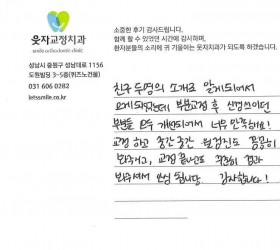 웃자교정치과
smile orthodontic clinic
성남시 중원구 성남대로 1156
도원빌딩 3~5층(퀴즈노건물)
031 606 0282
letssmile.co.kr
소중한 후기 감사드립니다.
함께 할 수 있었던 시간에 감사하며,
환자분들의 소리에 귀 기울이는 웃자치과가 되도록 하겠습니다.
친구 두명의 소개로 알게되어서
오게 되었는데 부분교정 후 신경쓰이던
부분들 모두 개선되어서 너무 만족해요!
교정 하고 중간 중간 원장님도 꼼꼼히
봐주시고, 교정 끝난 꼼꼼히 결과
봐주셔서 안심 됩니당 감사합니다!